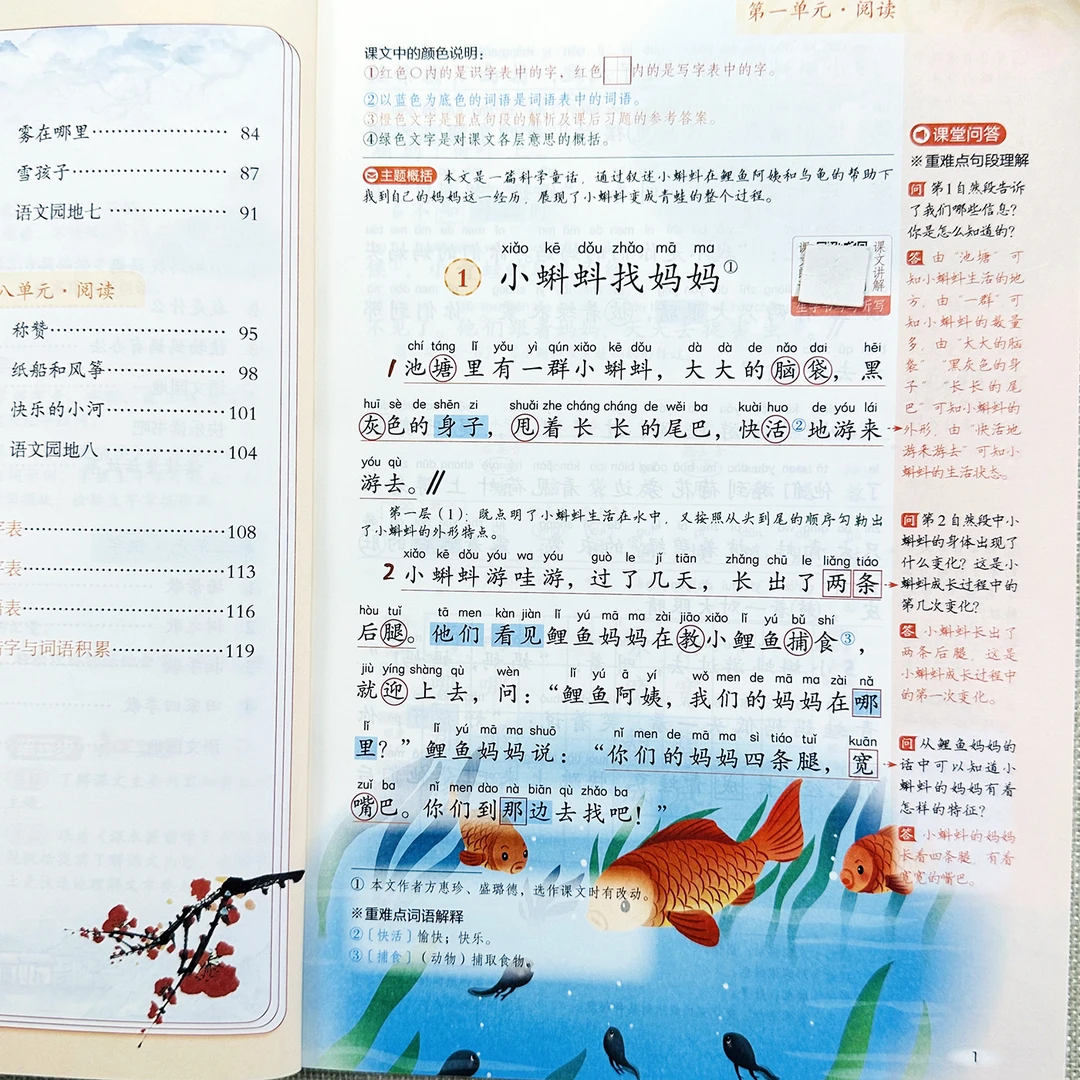 雾在哪里 84
雪孩子 87
语文园地七 91
八单元·阅读
称赞 95
纸船和风筝 98
快乐的小河 101
语文园地八 104
字表 108
字表 113
语表 116
字与词语积累 119
第一单元·阅读
课文中的颜色说明：
①红色○内的是识字表中的字，红色 内的是写字表中的字。
②以蓝色为底色的词语是词语表中的词语。
③橙色文字是重点句段的解析及课后习题的参考答案。
④绿色文字是对课文各层意思的概括。
主题概括 本文是一篇科学童话，通过叙述小蝌蚪在鲤鱼阿姨和乌龟的帮助下
找到自己的妈妈这一经历，展现了小蝌蚪变成青蛙的整个过程。
xiǎo kē dǒu zhǎo mā ma
1 小蝌蚪找妈妈①
课文讲解
chí táng lǐ yǒu yì qún xiǎo kē dǒu dà dà de nǎo dai hēi
1 池塘里有一群小蝌蚪，大大的脑袋，黑
huī sè de shēn zi shuǎi zhe cháng cháng de wěi ba kuài huo de yóu lái
灰色的身子，甩着长长的尾巴，快活②地游来
yóu qù
游去。//
第一层（1）：既点明了小蝌蚪生活在水中，又按照从头到尾的顺序勾勒出
了小蝌蚪的外形特点。
xiǎo kē dǒu yóu wa yóu guò le jǐ tiān zhǎng chū le liǎng tiáo
2 小蝌蚪游哇游，过了几天，长出了两条
hòu tuǐ tā men kàn jiàn lǐ yú mā ma zài jiāo xiǎo lǐ yú bǔ shí
后腿。他们看见鲤鱼妈妈在教小鲤鱼捕食③，
jiù yíng shàng qù wèn lǐ yú ā yí wǒ men de mā ma zài nǎ
就迎上去，问：“鲤鱼阿姨，我们的妈妈在哪
lǐ lǐ yú mā ma shuō nǐ men de mā ma sì tiáo tuǐ kuān
里？”鲤鱼妈妈说：“你们的妈妈四条腿，宽
zuǐ ba nǐ men dào nà biān qù zhǎo ba
嘴巴。你们到那边去找吧！”
① 本文作者方惠珍、盛璐德，选作课文时有改动。
※重难点词语解释
②〔快活〕愉快；快乐。
③〔捕食〕（动物）捕取食物。
课堂问答
※重难点句段理解
问 第1自然段告诉
了我们哪些信息？
你是怎么知道的？
答 由“池塘”可
知小蝌蚪生活的地
方，由“一群”可
知小蝌蚪的数量
多，由“大大的脑
袋”“黑灰色的身
子”“长长的尾
巴”可知小蝌蚪的
外形，由“快活地
游来游去”可知小
蝌蚪的生活状态。
问 第2自然段中小
蝌蚪的身体出现了
什么变化？这是小
蝌蚪成长过程中的
第几次变化？
答 小蝌蚪长出了
两条后腿，这是
小蝌蚪成长过程中
的第一次变化。
问 从鲤鱼妈妈的
话中可以知道小
蝌蚪的妈妈有着
怎样的特征？
答 小蝌蚪的妈妈
长着四条腿，有着
宽宽的嘴巴。
1